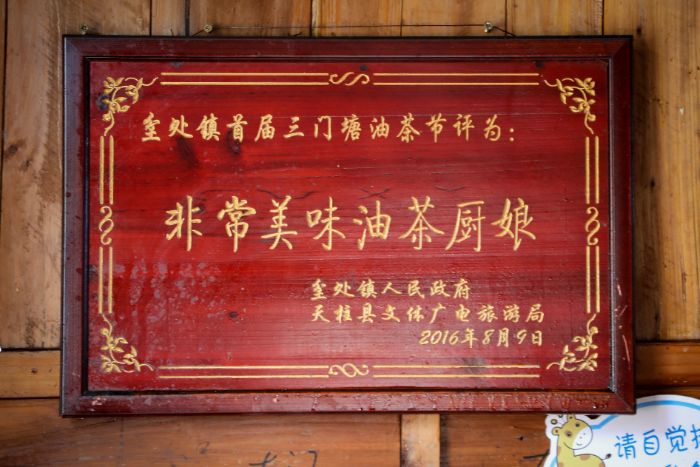 坌处镇首届三门塘油茶节评为：
非常美味油茶厨娘
坌处镇人民政府
天柱县文体广电旅游局
2016年8月9日
请自觉